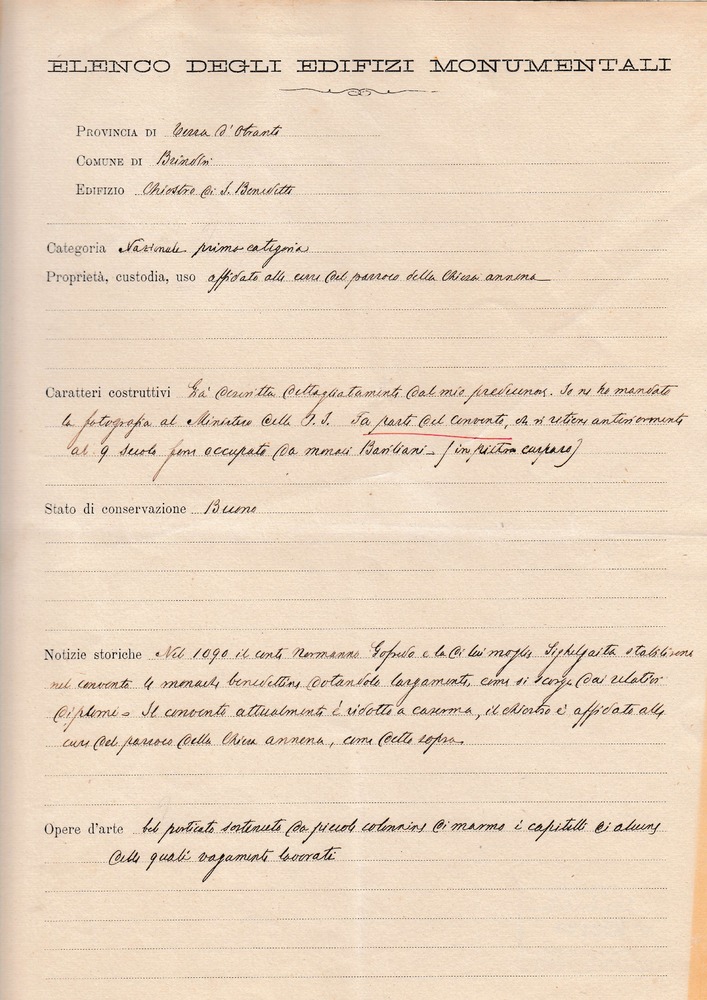 ELENCO DEGLI EDIFIZI MONUMENTALI
PROVINCIA DI Terra d'Otranto
COMUNE DI Brindisi
EDIFIZIO Chiostro di S. Benedetto
Categoria Nazionale prima categoria
Proprietà, custodia, uso affidato alle cure del parroco della Chiesa annessa
Caratteri costruttivi Già descritta dettagliatamente dal mio predecessore. Io ne ho mandato
la fotografia al Ministero della P. I. Fa parte del convento, che si ritiene anteriormente
al 9 secolo fosse occupato da monaci Basiliani - (in pietra carparo)
Stato di conservazione Buono
Notizie storiche Nel 1090 il conte Normanno Gofredo e la di lui moglie Sighelgaita stabilirono
nel convento le monache benedettine dotandolo largamente, come si scorge dai relativi
diplomi - Il convento attualmente è ridotto a caserma, il chiostro è affidato alle
cure del parroco della Chiesa annessa, come detto sopra
Opere d'arte bel porticato sostenuto da piccole colonnine di marmo i capitelli di alcune
delle quali vagamente lavorati